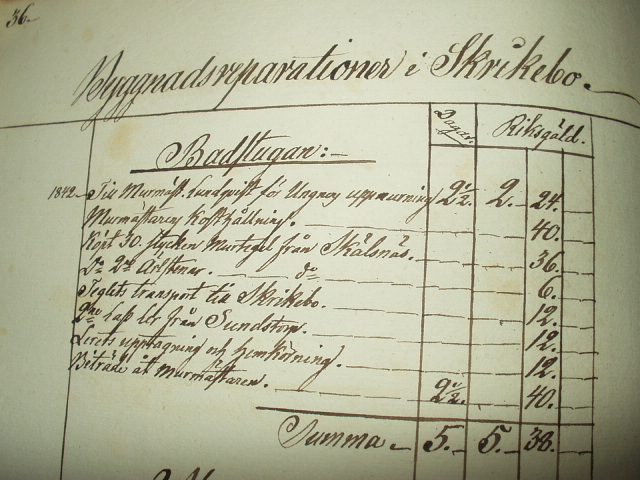 36.
Byggnadsreparationer i Skrikebo.
Dagar. Riksgäld.
Badstugan:
1842. Till Murmäst. Lundqvist för Ugnens uppmurning 2 1/2. 2. 24.
Murmästarens Kosthållning. 40.
Köpt 30. stycken Murtegel från Skälsnäs. 36.
Do 2ne Ärlstenar. do 6.
Teglets transport till Skrikebo. 12.
2ne lass ler från Sundstorp. 12.
Lerets upptagning och hemkörning. 12.
Biträde åt Murmästaren. 2 1/2. 40.
Summa 5. 5. 38.